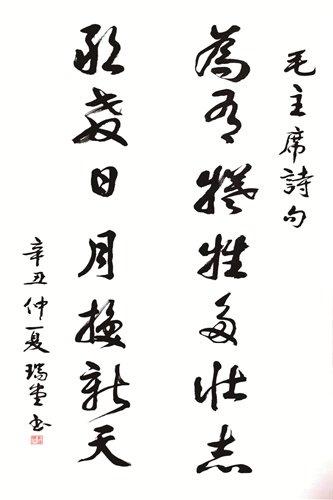 毛主席詩句
為有犧牲多壯志
敢教日月換新天
辛丑仲夏瑞生书